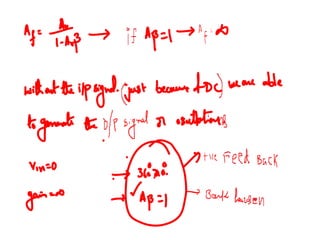 Af = Av / 1-Avβ → if Aβ=1 → Af = ∞
without the i/p signal. (just because of DC) we are able
to generate the O/P signal or oscillations
Vin=0 → 360° or 0° → +ve Feed Back
gain=∞ → ✓ Aβ=1 → Bark hausen